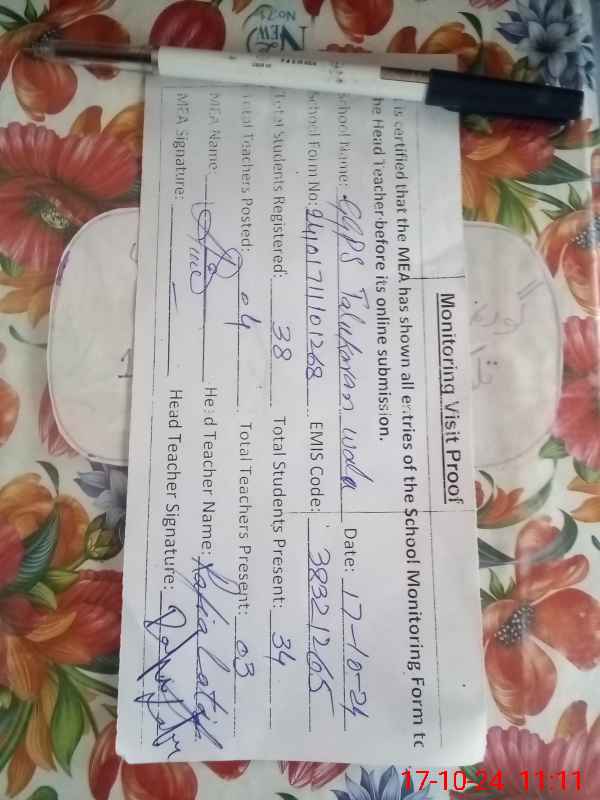 NEW
No.71
Monitoring Visit Proof
is certified that the MEA has shown all entries of the School Monitoring Form to
he Head Teacher before its online submission.
School Name: GGPS Talukaran wala Date: 17-10-24
School Form No: 2410171101268 EMIS Code: 38321265
Total Students Registered: 38 Total Students Present: 34
Total Teachers Posted: 04 Total Teachers Present: 03
MEA Name: Head Teacher Name: Rafia Latif
MEA Signature: Head Teacher Signature:
17-10-24 11:11